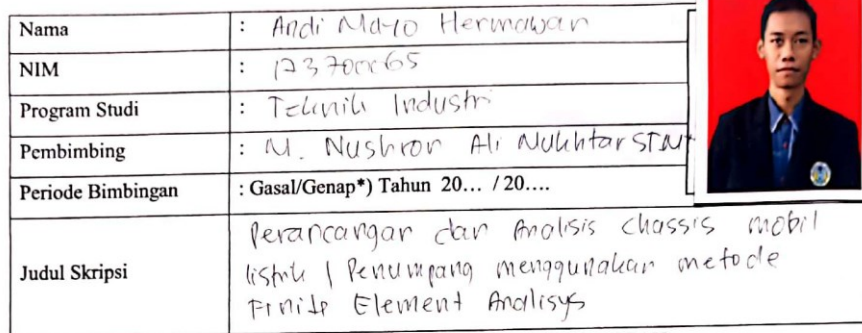 Nama : Andi Mayo Hermawan
NIM :
Program Studi : Teknik Industri
Pembimbing : M. Nushron Ali Mukhtar
Periode Bimbingan : Gasal/Genap*) Tahun 20... / 20....
Perancangan dan Analisis chassis mobil
Judul Skripsi listrik 1 Penumpang menggunakan metode
Finite Element Analisys